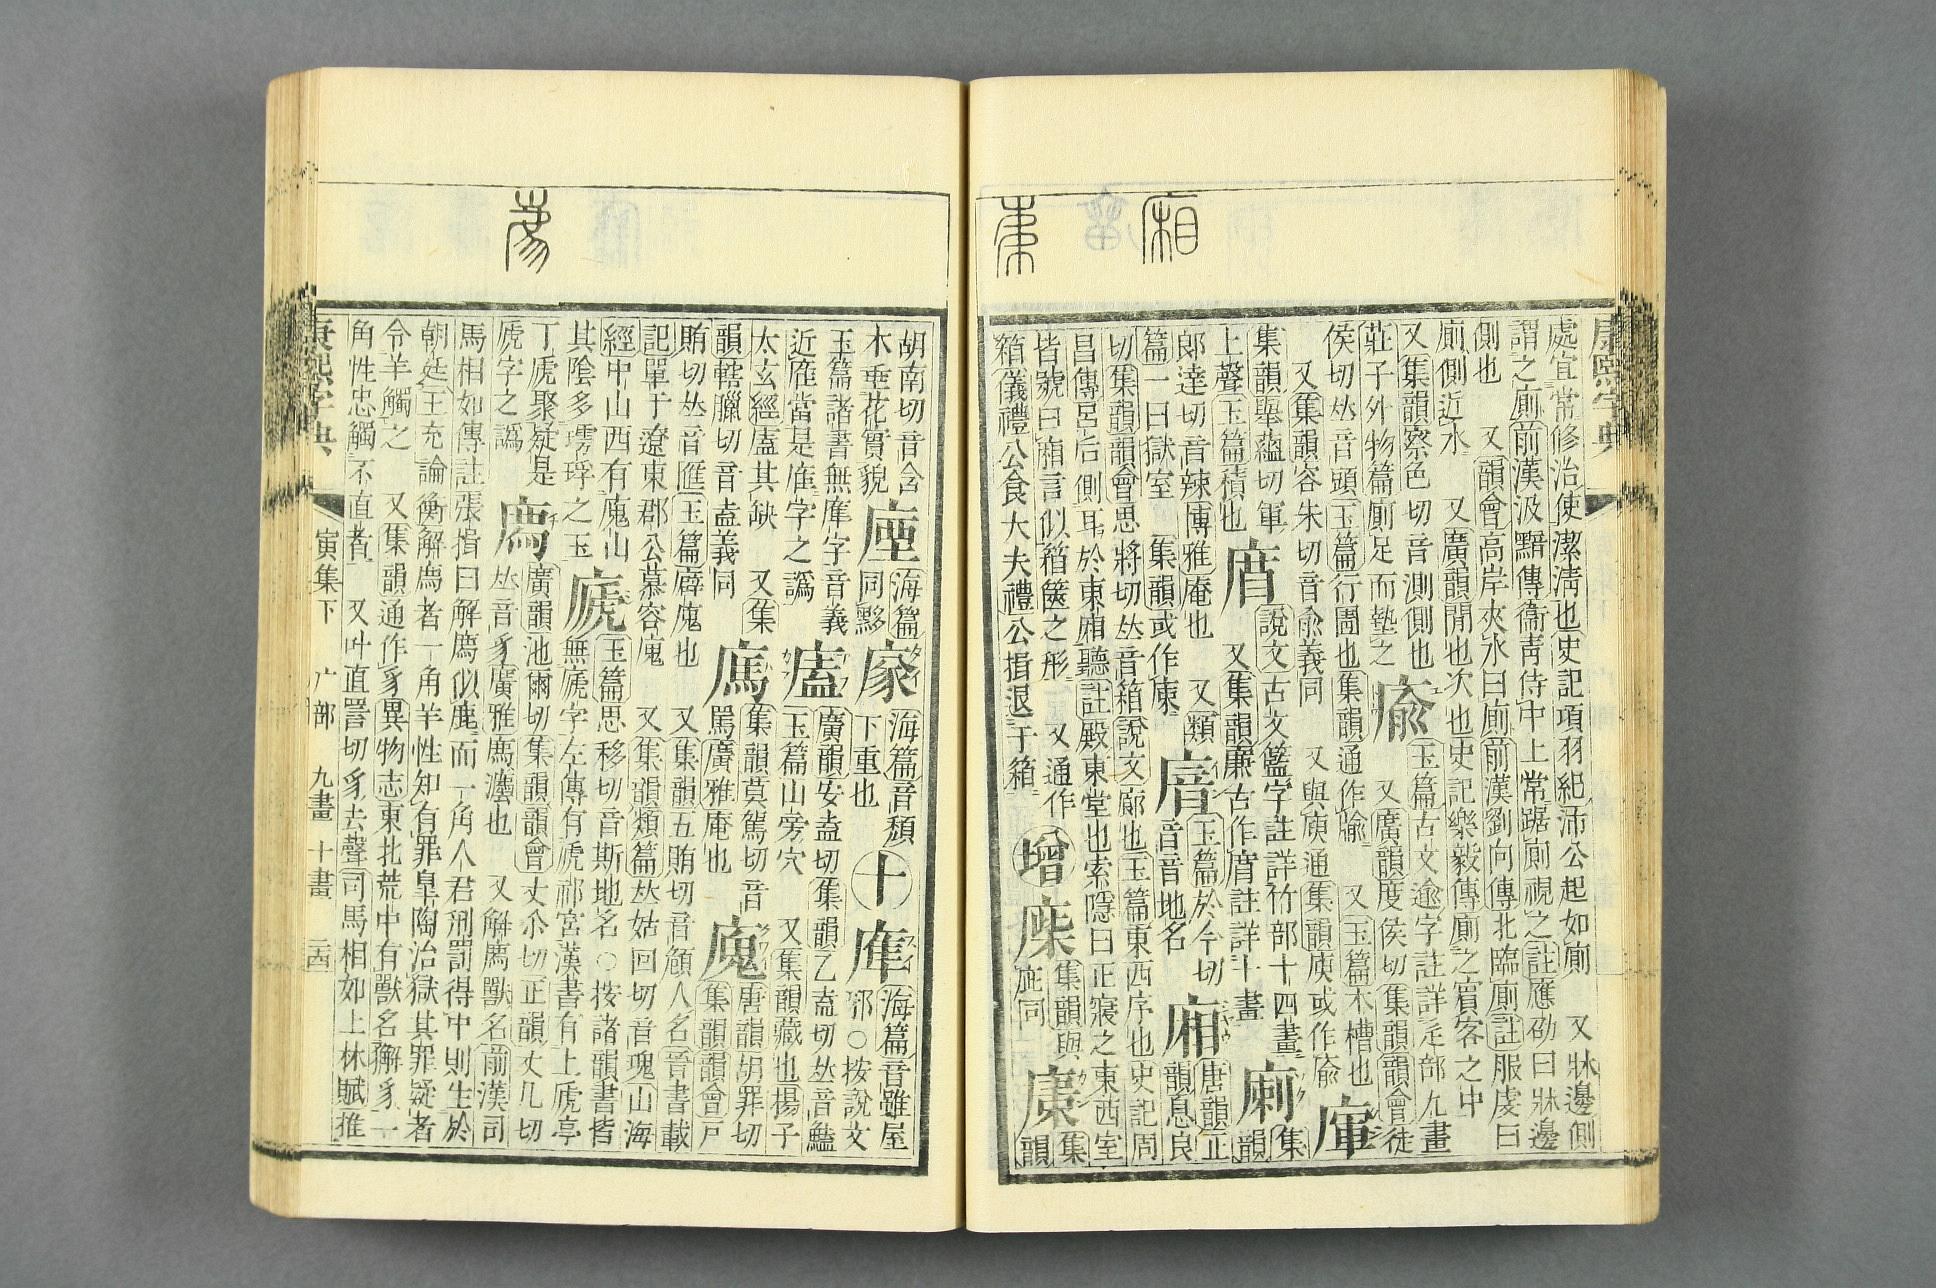 廂
㯥
康熙字典
處宜常修治使潔清也史記項羽紀沛公起如廁 又牀邊側
謂之廁前漢汲黯傳衞靑侍中上常踞廁視之註應劭曰牀邊
側也 又韻會高岸夾水曰廁前漢劉向傳北臨廁註服虔曰
廁側近水 又廣韻閒也次也史記樂毅傳廁之賓客之中
又集韻察色切音測側也
莊子外物篇廁足而墊之
廥
玉篇古文逾字註詳辵部九畫
又廣韻度侯切集韻韻會徒
侯切𠀤音頭玉篇行圊也集韻通作牏 又玉篇木槽也
又集韻容朱切音兪義同 又與庾通集韻庾或作㢏
㡓
集韻舉蘊切軍
上聲玉篇積也
說文古文鑑字註詳竹部十四畫
又集韻廉古作㢘註詳十畫
廚
集韻
郞達切音辣博雅庵也 又類
篇一曰獄室 集韻或作㾿
㾕
玉篇於今切
音音地名
廂
唐韻正韻息良
切集韻韻會思將切𠀤音箱說文廊也玉篇東西序也史記周
昌傳呂后側耳於東廂聽註殿東堂也索隱曰正寢之東西室
皆號曰廂言似箱篋之形 又通作
箱儀禮公食大夫禮公揖退于箱
增
集韻與
庛同
㢠
集韻
胡南切音含
木垂花實貌
㢒
海篇
同夥
㢓
海篇音頹
下重也
十
㢈
海篇音雖屋
邪○按說文
玉篇諸書無㢈字音義
近㢈當是㢈字之譌
㢔
廣韻安盍切集韻乙盍切𠀤音鰪
玉篇山旁穴 又集韻藏也揚子
太玄經㢔其缺 又集
韻轄臘切音盍義同
㢗
集韻莫駕切音
駡廣雅庵也
廆
唐韻胡罪切
集韻韻會戸
賄切𠀤音匯玉篇廦廆也 又集韻五賄切音頠人名晉書載
記單于遼東郡公慕容廆 又集韻類篇𠀤姑回切音瑰山海
經中山西有廆山
其陰多㻬琈之玉
㢋
玉篇思移切音斯地名○按諸韻書皆
無㢋字左傳有虒祁宮漢書有上虒亭
丁虒聚疑是
虒字之譌
廌
廣韻池爾切集韻韻會丈尒切正韻丈几切
𠀤音豸廣雅廌灋也 又解廌獸名前漢司
馬相如傳註張揖曰解廌似鹿而一角人君刑罰得中則生於
朝廷王充論衡解廌者一角羊性知有罪臯陶治獄其罪疑者
令羊觸之 又集韻通作豸異物志東北荒中有獸名獬豸一
角性忠觸不直者 又叶直詈切豸去聲司馬相如上林賦推
康熙字典 寅集下 广部 九畫 十畫